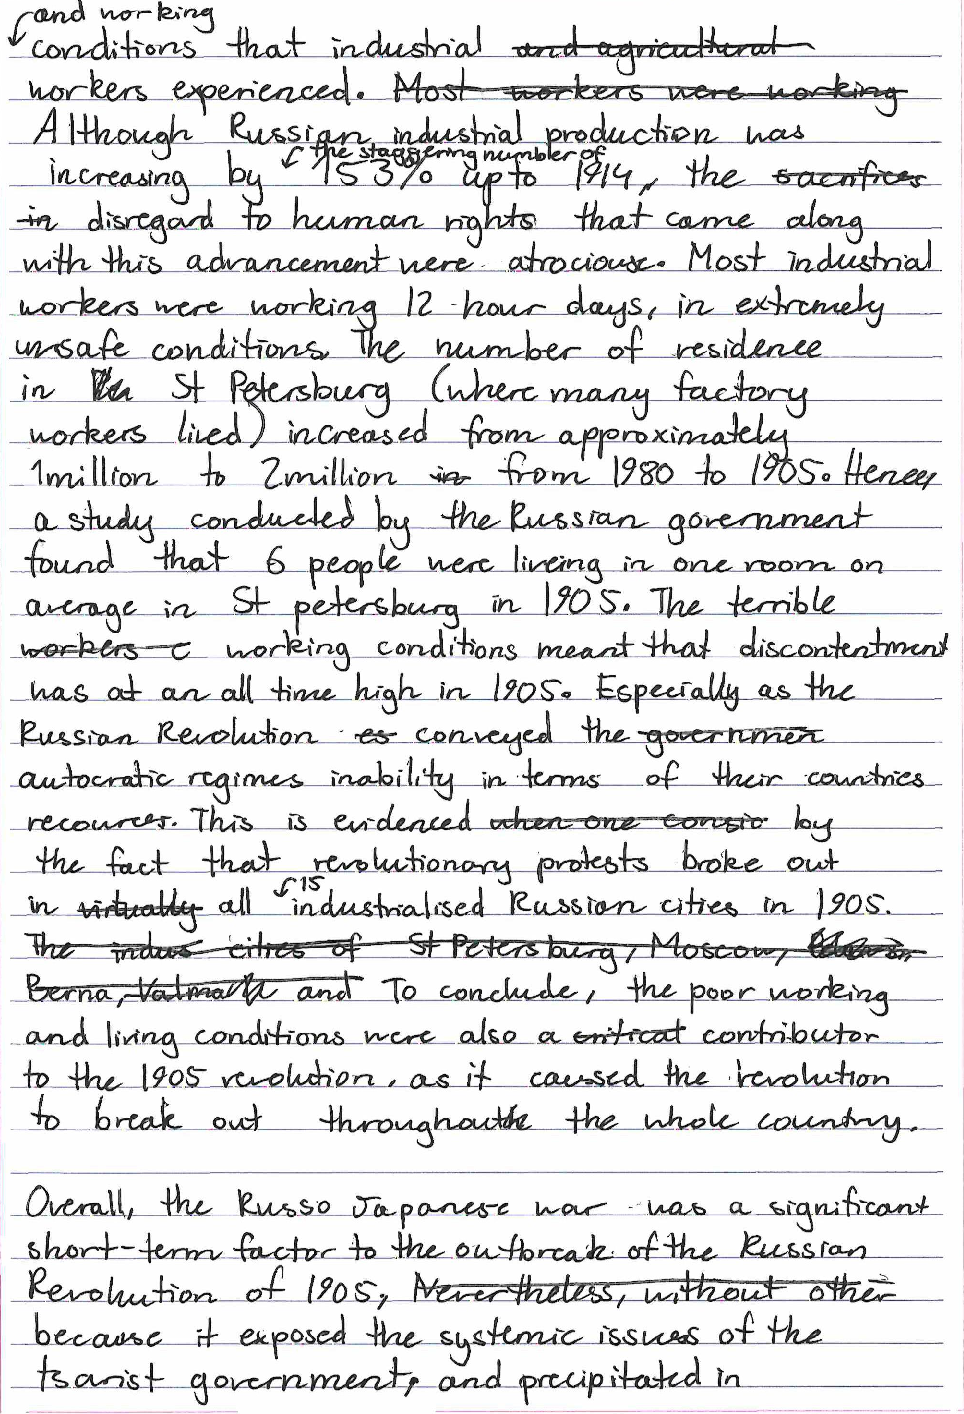 and working
conditions that industrial and agricultural
workers experienced. Most workers were working
Although Russian industrial production was
the staggering number of
increasing by 153% up to 1914, the sacrifices
in disregard to human rights that came along
with this advancement were atrociouse. Most industrial
workers were working 12-hour days, in extremely
unsafe conditions. The number of residence
in St Petersburg (where many factory
workers lived) increased from approximately
1million to 2million in from 1980 to 1905. Hence,
a study conducted by the Russian government
found that 6 people were liveing in one room on
average in St petersburg in 1905. The terrible
workers c working conditions meant that discontentment
was at an all time high in 1905. Especially as the
Russian Revolution es conveyed the governmen
autocratic regimes inability in terms of their countries
recources. This is evidenced when one consid by
the fact that revolutionary protests broke out
15
in virtually all industrialised Russian cities in 1905.
The indus cities of St Petersburg, Moscow,
Berna, and To conclude, the poor working
and living conditions were also a critical contributor
to the 1905 revolution, as it caused the revolution
to break out throughout the whole country.
Overall, the Russo Japanese war was a significant
short-term factor to the outbreak of the Russian
Revolution of 1905, Nevertheless, without other
because it exposed the systemic issues of the
tsarist government, and precipitated in